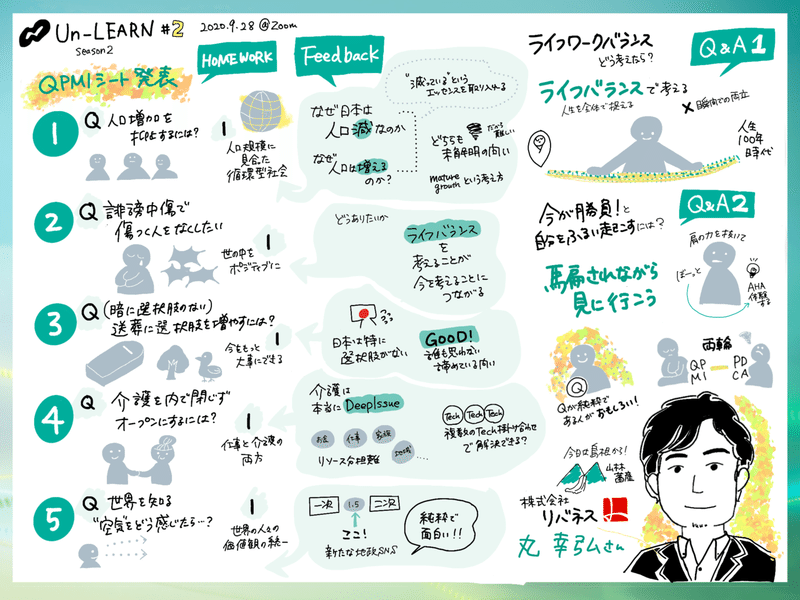 Un-LEARN #2
season2
2020.9.28 @Zoom
QPMIシート発表
HOMEWORK
Feedback
1
Q 人口増加を
抑止するには?
I
人口規模に
見合った
循環型社会
"減っている"という
エッセンスを取り入れる
なぜ日本は
人口減なのか
なぜ
人口は増える
のか?
どちらも
だから
難しい
未解明の問い
mature
growth という考え方
2
Q 誹謗中傷で
傷つく人をなくしたい
I
世の中を
ポジティブに
どうありたいか
ライフバランス
を
考えることが
今を考えることに
つながる
3
Q (暗に選択肢のない)
送葬に選択肢を増やすには?
I
今をもっと
大事にできる
日本は特に
選択肢がない
GOOD!
誰も思わない
諦めている問い
4
Q 介護を内で閉じず
オープンにするには?
I
仕事と介護の
両方
介護は
本当に DeepIssue
お金
仕事
家族
リソース分担難
Tech
Tech
Tech
複数のTech掛け合わせ
で解決できる?
5
Q 世界を知る
"空気"をどう感じたら…?
I
世界の人々の
価値観の統一
一次
1.5
二次
ここ!
新たな地政SNS
純粋で
面白い!!
ライフワークバランス
どう考えたら?
Q&A1
ライフバランスで考える
人生を全体で捉える
×瞬間での両立
人生
100年
時代
今が勝負!と
自分をふるい起こすには?
Q&A2
馬扁されながら
見に行こう
肩の力を抜いて
ぼーっと
AHA
体験
する
Q
Qが純粋で
ある人がおもしろい!
両輪
QP
MI
PD
CA
今日は島根から!
山林
畜産
株式会社
リバネス
丸 幸弘さん